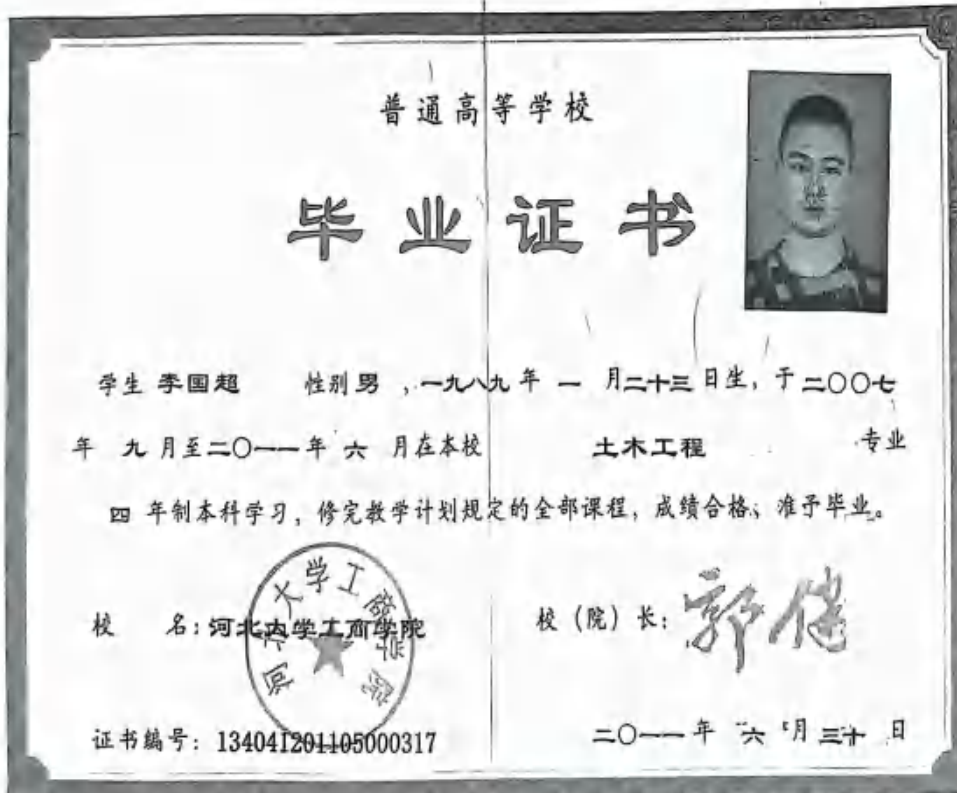 普通高等学校
毕业证书
学生 李国超 性别 男 ，一九八九 年 一 月二十三 日生，于 二〇〇七
年 九 月至二〇一一年 六 月在本校 土木工程 专业
四 年制本科学习，修完教学计划规定的全部课程，成绩合格，准予毕业。
校 名：河北大学工商学院
河北大学工商学院
校（院）长：郭健
证书编号：134041201105000317
二〇一一 年 六 月 三十 日